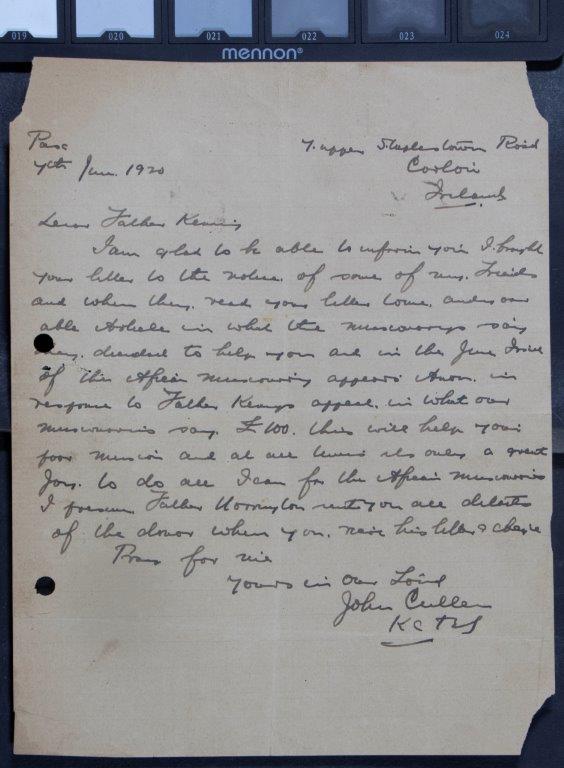 019 020 021 022 023 024
mennon®
Pax 7. upper Staplestown Road
7th Jun. 1920 Carlow
Ireland
Dear Father Kenny
I am glad to be able to inform you I brought
your letter to the notice. of some of my. Friends
and when they. read your letter to me. and your
able Article in what the missionarys say
they. decided to help you and in the June Issue
of the African missionary appears Anon. in
response to Father Kennys appeal. in what our
missionaries say. £100. this will help your
poor mission and at all times its only a great
Joy. to do all I can for the African missionaries
I presume Father Harrington sent you all details
of the donor when you. his letter & cheque
Pray for me
yours in Our Lord
John Cullen